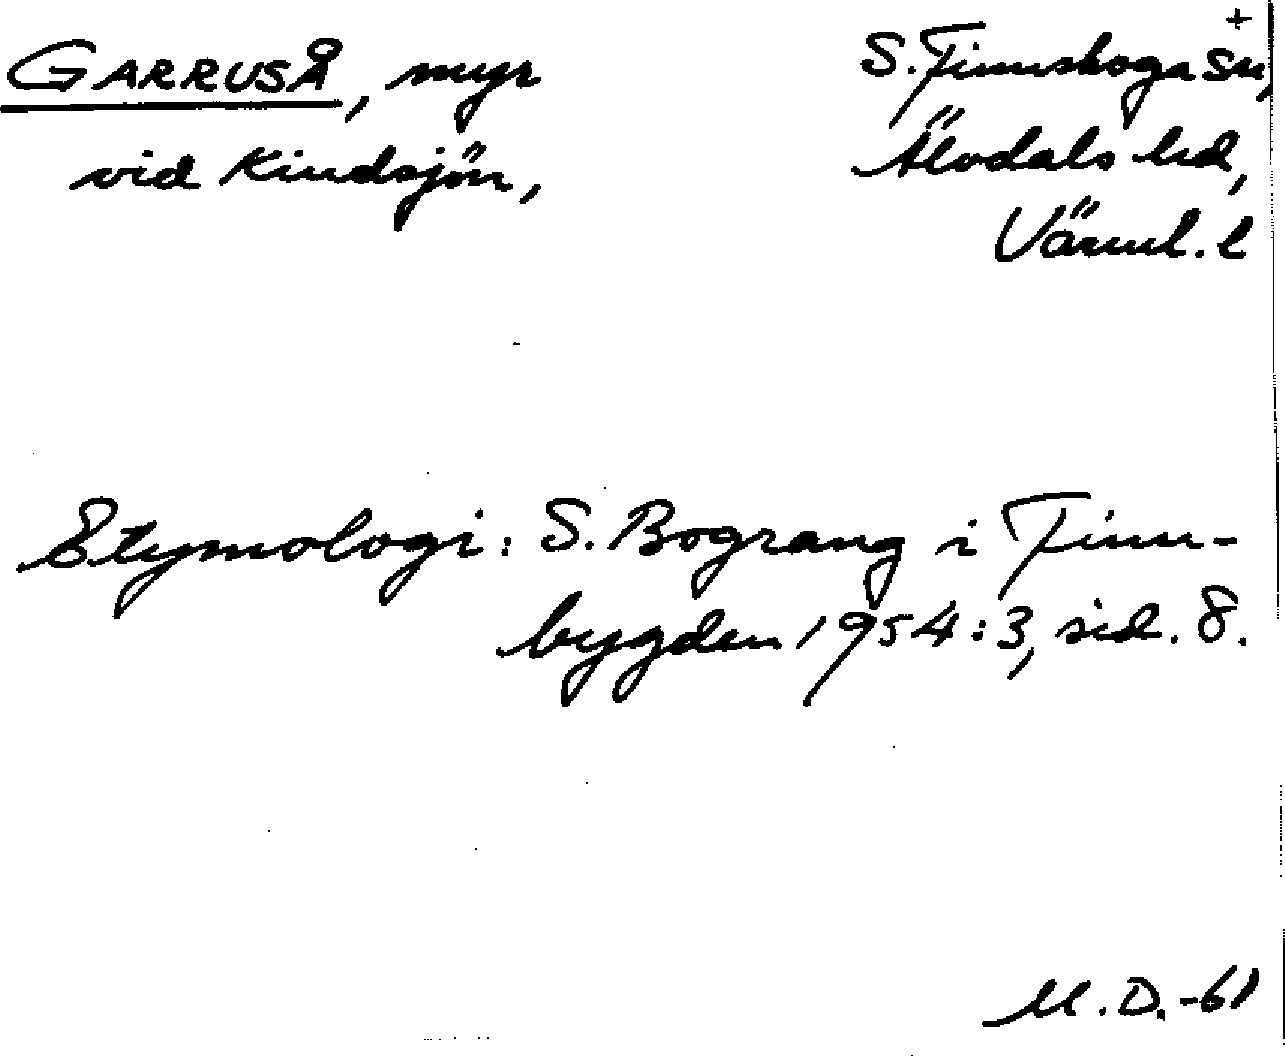 GARRUSÅ, myr
vid Kindsjön,
+
S. Finnskoga sn,
Älvdals hd,
Värml. l
Etymologi: S. Bograng i Finn-
bygden 1954:3, sid. 8.
M.D. -61